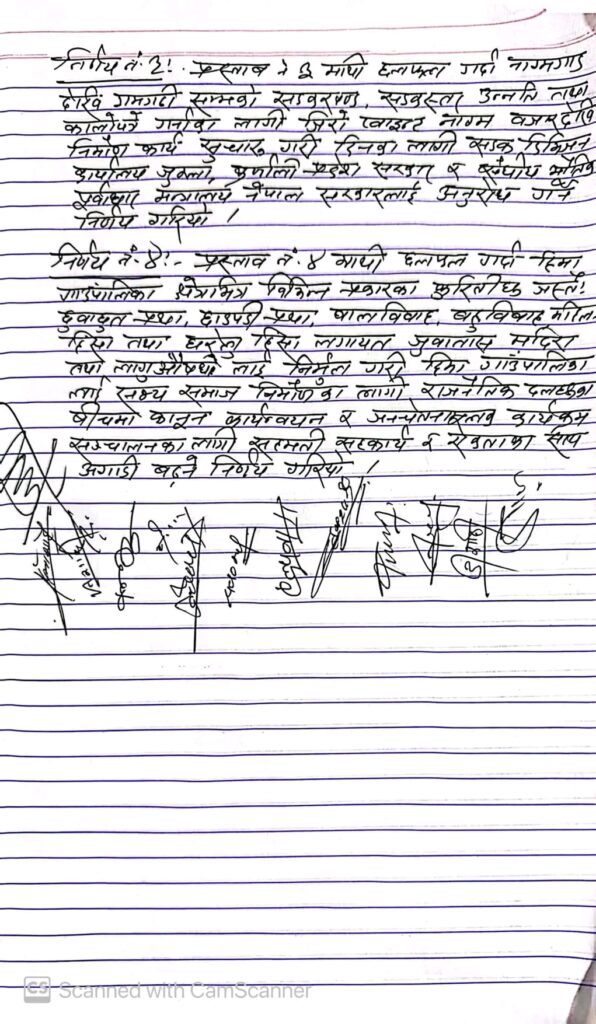 निर्णय नं. ३:- प्रस्ताव नं ३ माथी छलफल गर्दा नाग्मगाड
देखि गमगढी सम्मको सडकखण्ड, सडकस्तर उन्नति तथा
कालोपत्रे गर्नका लागी जिरो प्वाइन्ट नाग्म बजारदेखि
निर्माण कार्य सुचारु गरी दिनका लागी सडक डिभिजन
कार्यालय जुम्ला, कर्णाली प्रदेश सरकार र संघीय भौतिक
पूर्वाधार मन्त्रालय नेपाल सरकारलाई अनुरोध गर्ने
निर्णय गरियो ।
निर्णय नं. ४:- प्रस्ताव नं. ४ माथी छलफल गर्दा हिमा
गाउँपालिका क्षेत्रभित्र विभिन्न प्रकारका कुरितीहरु जस्तै:
छुवाछुत प्रथा, छाउपडी प्रथा, बालविवाह, बहुविवाह महिला
हिंसा तथा घरेलु हिंसा लगायत जुवातास मदिरा
तथा लागुऔषध लाई निर्मुल गरी हिमा गाउँपालिका
लाई सभ्य समाज निर्माणका लागी राजनैतिक दलहरुका
बीचमा कानून कार्यन्वयन र जनचेतनामुलक कार्यक्रम
सञ्चालनका लागी सहमती सहकार्य र एकताका साथ
अगाडी बढ्ने निर्णय गरियो ।
CS Scanned with CamScanner